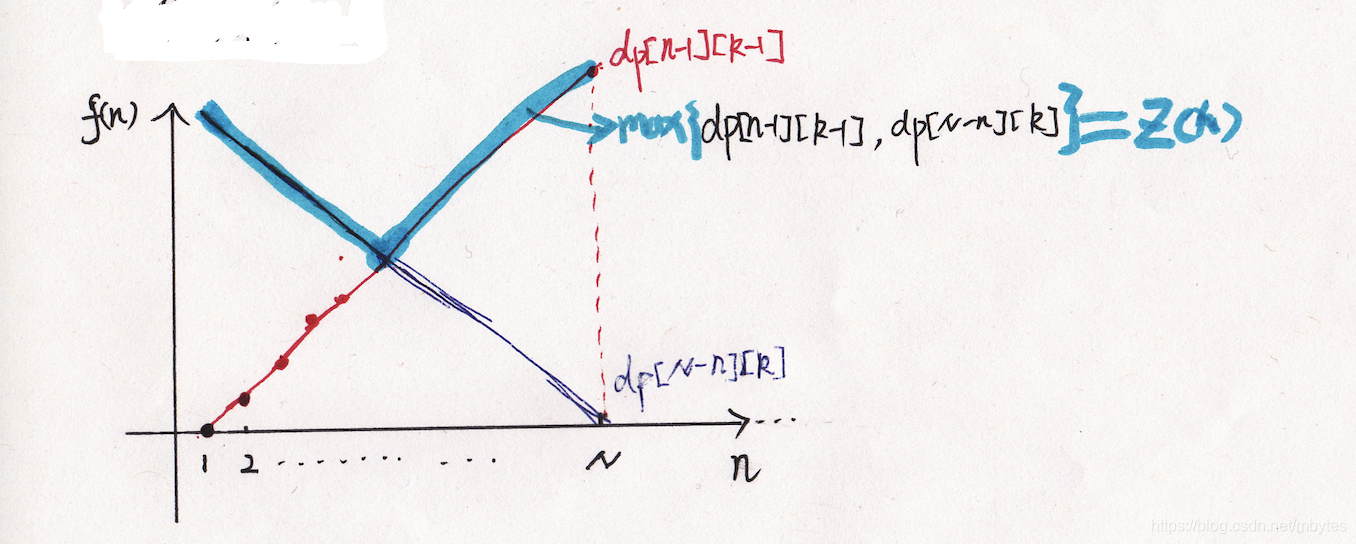 dp[n-1][k-1]
f(n)
max{dp[n-1][k-1], dp[N-n][k]}=Z(n)
dp[N-n][k]
1 2 ........ ... N n ...
https://blog.csdn.net/mbytes